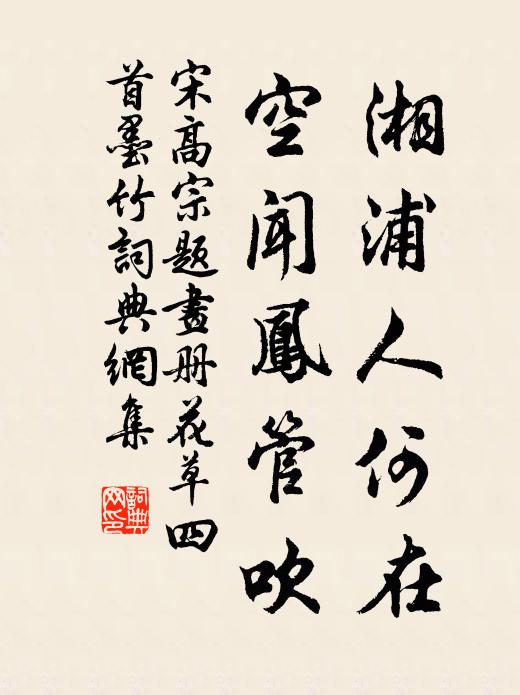 湘浦人何在
空聞鳳管吹
宋高宗題畫册花草四
首墨竹詞典網集
詞典网印